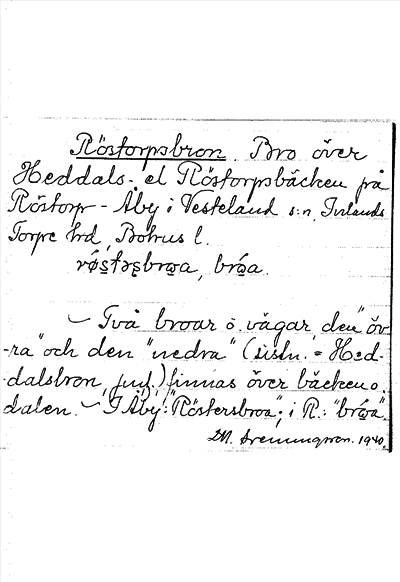 Röstorpsbron. Bro över
Heddals- el Röstorpsbäcken på
Röstorp - Åby i Vesteland s:n, Inlands
Torpe hrd, Bohus l.
brɷa, brɷ́a.
– Två broar o. vägar, den "öv-
-ra" och den "nedra" (sistn. = Hed-
dalsbron, jmf.) finnas över bäcken o.
dalen. – I Åby: "Röstersbroa"; i R.: "brɷ́a".
1940.